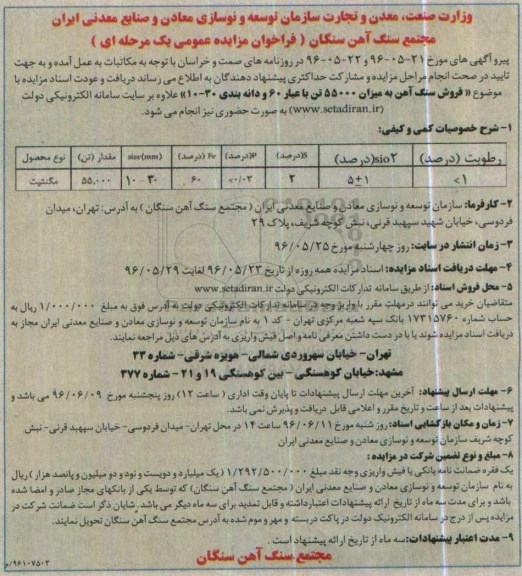 وزارت صنعت، معدن و تجارت سازمان توسعه و نوسازی معادن و صنایع معدنی ایران
مجتمع سنگ آهن سنگان ( فراخوان مزایده عمومی یک مرحله ای )
پیرو آگهی های مورخ ۲۱-۰۵-۹۶ و ۲۲-۰۵-۹۶ در روزنامه های صمت و خراسان با توجه به مکاتبات به عمل آمده و به جهت
تایید در صحت انجام مراحل مزایده و مشارکت حداکثری پیشنهاد دهندگان به اطلاع می رساند دریافت و عودت اسناد مزایده با
موضوع « فروش سنگ آهن به میزان ۵۵۰۰۰ تن با عیار ۶۰ و دانه بندی ۳۰-۱۰» علاوه بر سایت سامانه الکترونیکی دولت
(www.setadiran.ir) به صورت حضوری نیز انجام می شود.
۱- شرح خصوصیات کمی و کیفی:
نوع محصول مقدار (تن) size(mm) Fe (درصد) P(درصد) S(درصد) sio۲(درصد) رطوبت (درصد)
مگنتیت ۵۵،۰۰۰ ۱۰-۳۰ ۶۰ <۰/۰۳ ۲ ۵±۱ <۱
۲- کارفرما: سازمان توسعه و نوسازی معادن و صنایع معدنی ایران ( مجتمع سنگ آهن سنگان ) به آدرس: تهران، میدان
فردوسی، خیابان شهید سپهبد قرنی، نبش کوچه شریف، پلاک ۲۹
۳- زمان انتشار در سایت: روز چهارشنبه مورخ ۹۶/۰۵/۲۵
۴- مهلت دریافت اسناد مزایده: اسناد مزایده همه روزه از تاریخ ۹۶/۰۵/۲۳ لغایت ۹۶/۰۵/۲۹
۵- محل فروش اسناد: از طریق سامانه تدارکات الکترونیکی دولت www.setadiran.ir
متقاضیان خرید می توانند در مهلت مقرر با واریز وجه در سامانه تدارکات الکترونیکی دولت به آدرس فوق به مبلغ ۱/۰۰۰/۰۰۰ ریال به
حساب شماره ۱۷۳۱۵۷۶۰ بانک سپه شعبه مرکزی تهران - کد ۱ به نام سازمان توسعه و نوسازی معادن و صنایع معدنی ایران مجاز به
دریافت اسناد مزایده شوند یا با در دست داشتن معرفی نامه و اصل فیش واریزی به آدرس های ذیل مراجعه نمایند.
تهران- خیابان سهروردی شمالی- هویزه شرقی- شماره ۳۳
مشهد:خیابان کوهسنگی - بین کوهسنگی ۱۹ و ۲۱ - شماره ۳۷۷
۶- مهلت ارسال پیشنهاد: آخرین مهلت ارسال پیشنهادات تا پایان وقت اداری ( ساعت ۱۲) روز پنجشنبه مورخ ۹۶/۰۶/۰۹ می باشد و
پیشنهادات بعد از ساعت و تاریخ مقرر و اعلامی قابل دریافت و پذیرش نمی باشد.
۷- زمان و مکان بازگشایی اسناد: روز شنبه مورخ ۹۶/۰۶/۱۱ ساعت ۱۴ در محل تهران- میدان فردوسی- خیابان سپهبد قرنی- نبش
کوچه شریف سازمان توسعه و نوسازی معادن و صنایع معدنی ایران
۸- مبلغ و نوع تضمین شرکت در مزایده :
یک فقره ضمانت نامه بانکی یا فیش واریزی وجه نقد مبلغ ۱/۲۹۲/۵۰۰/۰۰۰ ( یک میلیارد و دویست و نود و دو میلیون و پانصد هزار ) ریال
به نام سازمان توسعه و نوسازی معادن و صنایع معدنی ایران ( مجتمع سنگ آهن سنگان) که توسط یکی از بانکهای مجاز صادر و امضا شده
باشد و برای مدت سه ماه از تاریخ ارائه پیشنهادات اعتبار داشته و قابل تمدید برای سه ماه دیگر می باشد. شایان ذکر است ضمانت شرکت در
مزایده پس از درج در سامانه الکترونیک دولت در پاکت دربسته و مهر و موم شده به آدرس مجتمع سنگ آهن سنگان تحویل نمایند.
۹- مدت اعتبار پیشنهادات:سه ماه از تاریخ ارائه پیشنهاد است .
مجتمع سنگ آهن سنگان
۹۶۱۰۷۵۰۳/م